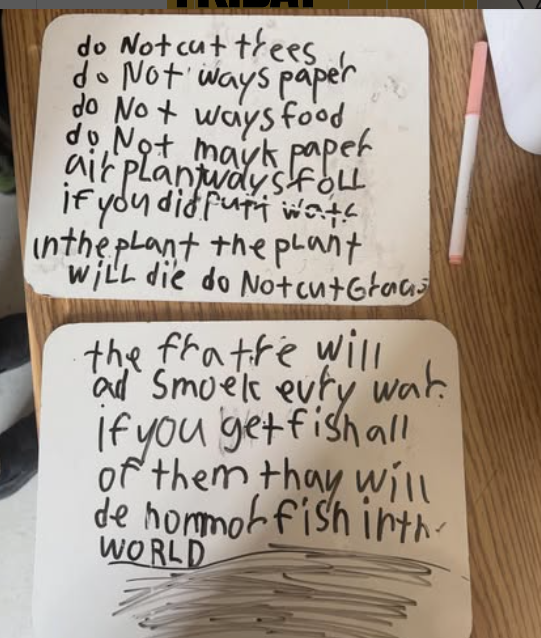 do Not cut trees
do Not ways paper
do Not ways food
do Not mayk paper
air plantways foLL
if you did
in the pLant the pLant
wiLL die do Not cut Grass
the fratre will
ad Smoek evry war.
if you get fish all
of them thay will
de nommor fish in th
WORLD